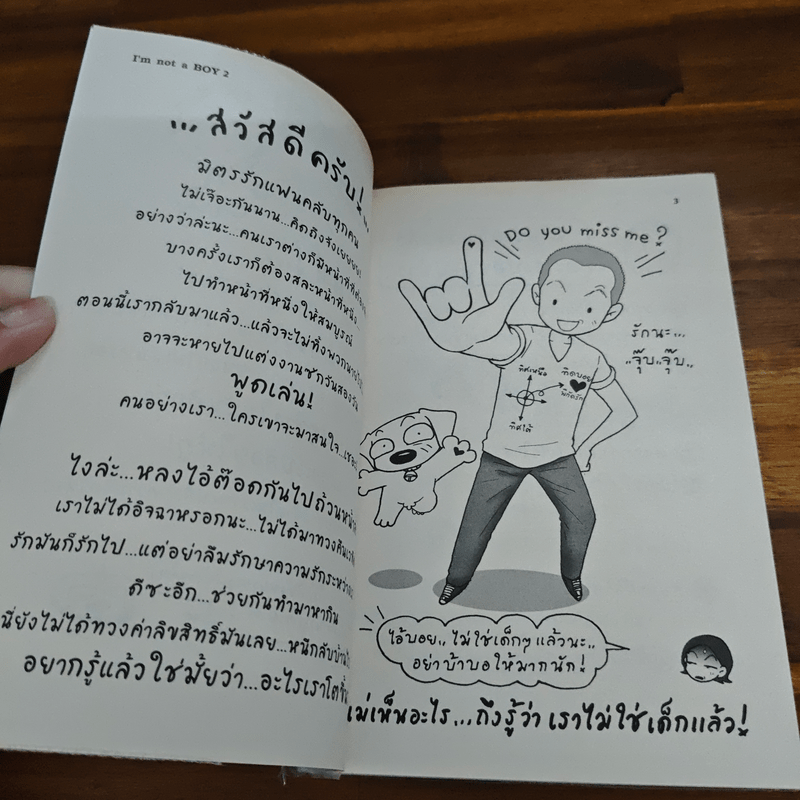 I'm not a BOY 2
...สวัสดีครับ!...
มิตรรักแฟนคลับทุกคน
ไม่เจ๊อะกันนาน...คิดถึงจังเยยยย!
อย่างว่าล่ะนะ...คนเราต่างก็มีหน้าที่
บางครั้งเราก็ต้องสละหน้าที่หนึ่ง...
ไปทำหน้าที่หนึ่งให้สมบูรณ์
ตอนนี้เรากลับมาแล้ว...แล้วจะไม่ทิ้งพวกนาย
อาจจะหายไปแต่งงานซักวันสองวัน
พูดเล่น!
คนอย่างเรา...ใครเขาจะมาสนใจ...
ไงล่ะ...หลงไอ้ต๊อดกันไปถ้วนหน้า
เราไม่ได้อิจฉาหรอกนะ...ไม่ได้มาทวงคืน
รักมันก็รักไป...แต่อย่าลืมรักษาความรักระหว่าง
ดีซะอีก...ช่วยกันทำมาหากิน
นี่ยังไม่ได้ทวงค่าลิขสิทธิ์มันเลย...หนีกลับบ้าน
อยากรู้แล้วใช่มั้ยว่า...อะไรเราโตขึ้น
3
Do you miss me?
รักนะ...
..จุ๊บ..จุ๊บ..
ทิศเหนือ
ทิดบอย
พิกัดรัก
ทิศใต้
ไอ้บอย..ไม่ใช่เด็กๆแล้วนะ..
อย่าบ้าบอให้มากนัก!
เห็นอะไร...ถึงรู้ว่า เราไม่ใช่เด็กแล้ว!